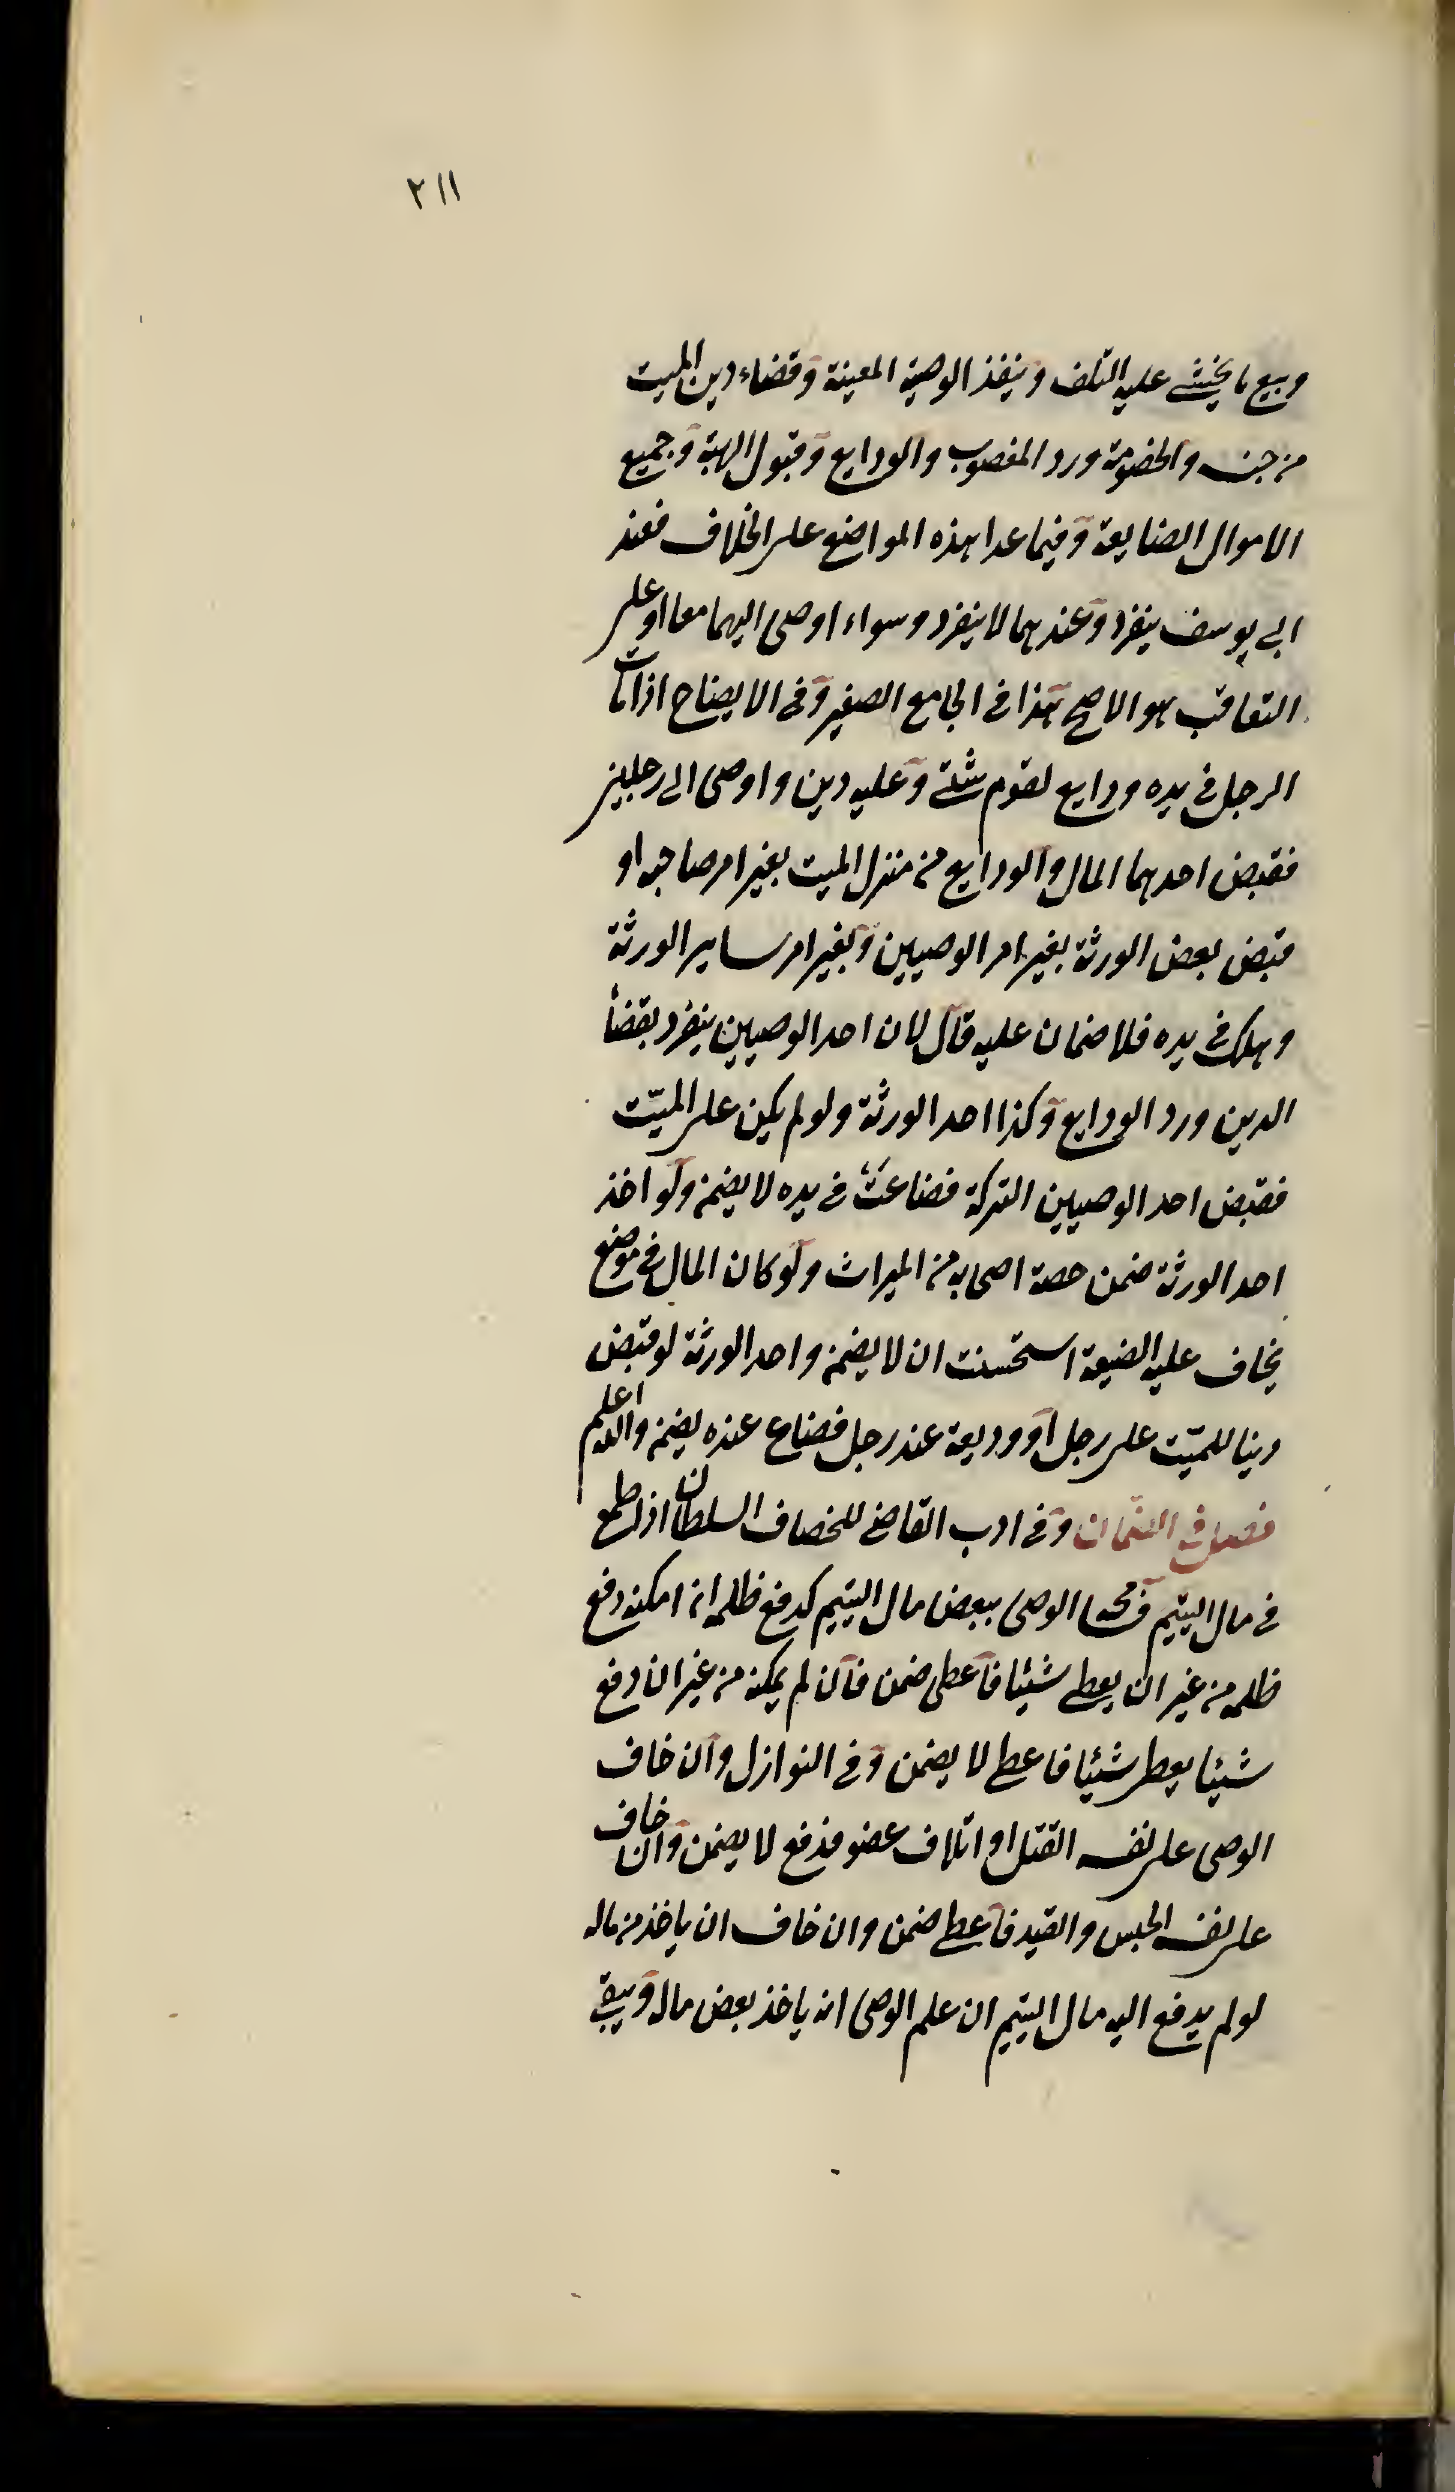 ٢١١
وبيع ما يخشى عليه التلف وينفذ الوصية المعينة وقضاء دين الميت
من جنسه والخصومة ورد المغصوب والودايع وقبول الهبة وجميع
الاموال الضايعة وفيما عدا هذه المواضع على الخلاف فعند
ابي يوسف ينفرد وعندهما لا ينفرد وسواء اوصى اليهما معا او على
التعاقب هو الاصح هذا في الجامع الصغير وفي الايضاح اذا مات
الرجل في يده ودايع لقوم شتى وعليه دين واوصى الى رجلين
فقبض احدهما المال والودايع من منزل الميت بغير امر صاحبه او
قبض بعض الورثة بغير امر الوصيين وبغير امر ساير الورثة
وهلك في يده فلا ضمان عليه قال لان احد الوصيين ينفرد بقضأ
الدين ورد الودايع وكذا احد الورثة ولو لم يكن على الميّت
فقبض احد الوصيين التركة فضاعت في يده لا يضمن ولو اخذ
احد الورثة ضمن حصة اصحابه من الميراث ولو كان المال في موضع
يخاف عليه الضيعة استحسنت ان لا يضمن واحد الورثة لو قبض
دينا للميّت على رجل او وديعة عند رجل فضاع عنده يضمن والله اعلم
فصل في الضمان وفي ادب القاضي للخصاف السلطان اذا طمع
في مال اليتيم الوصى ببعض مال اليتيم كدفع ظلمه ان امكنه دفع
ظلمه من غير ان يعطى شيئا فاعطى ضمن فان لم يمكنه من غير ان دفع
شيئا يعطى شيئا فاعطى لا يضمن وفي النوازل وان خاف
الوصى على نفسه القتل او اتلاف عضو فدفع لا يضمن وان خاف
على نفسه الحبس والقيد فاعطى ضمن وان خاف ان ياخذ من ماله
لو لم يدفع اليه مال اليتيم ان علم الوصى انه ياخذ بعض ماله ويبقى